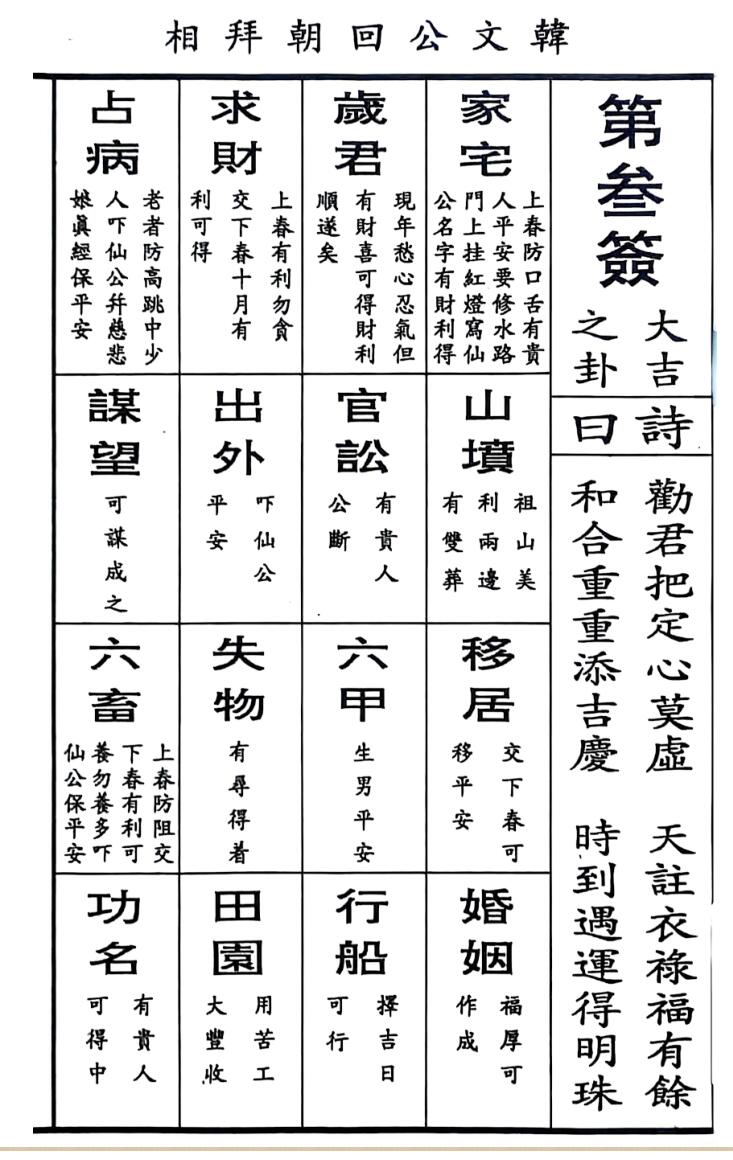 韓文公回朝拜相
第叁簽
大吉
之卦
詩
曰
勸君把定心莫虛　天註衣祿福有餘
和合重重添吉慶　時到遇運得明珠
家宅
上春防口舌有貴
人平安要修水路
門上挂紅燈寫仙
公名字有財利得
歲君
現年愁心忍氣但
有財喜可得財利
順遂矣
求財
上春有利勿貪
交下春十月有
利可得
占病
老者防高跳中少
人吓仙公幷慈悲
娘眞經保平安
山墳
祖山美
利兩邊
有雙葬
官訟
有貴人
公斷
出外
吓仙公
平安
謀望
可謀成之
移居
交下春可
移平安
六甲
生男平安
失物
有尋得着
六畜
上春防阻交
下春有利可
養勿養多吓
仙公保平安
婚姻
福厚可
作成
行船
擇吉日
可行
田園
用苦工
大豐收
功名
有貴人
可得中